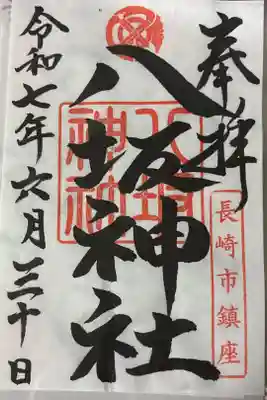 奉拝
長崎市鎮座
八坂神社
八坂神社
令和七年六月三十日